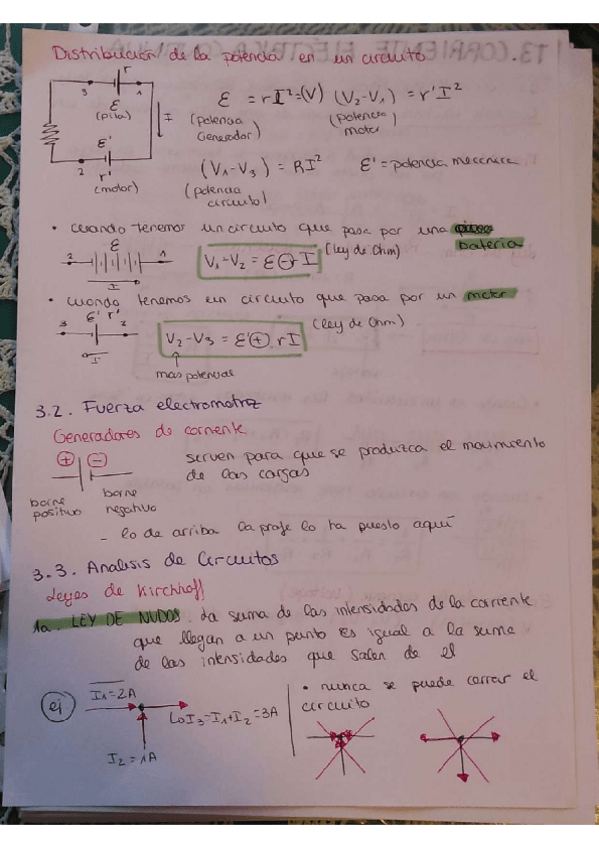 Distribución de la potencia en un circuito
r
3
1
ε
(pila)
I
ε'
2
r'
(motor)
ε = rI²=(V) (V₂-V₁) = r'I²
(potencia Generador)
(potencia motor)
(V₁-V₃) = RI²
ε' = potencia mecánica
(potencia circuito)
• cuando tenemos un circuito que pasa por una
batería
ε
2
1
I
V₁-V₂ = ε⊖I
(Ley de Ohm)
• cuando tenemos un circuito que pasa por un motor
ε' r'
3
2
I
V₂-V₃ = ε'⊕ rI
(Ley de Ohm)
mas potencial
3.2. Fuerza electromotriz
Generadores de corriente
+ -
sirven para que se produzca el movimiento
de las cargas
borne positivo
borne negativo
- lo de arriba la profe lo ha puesto aquí
3.3. Analisis de Circuitos
Leyes de Kirchhoff
1a. LEY DE NUDOS. La suma de las intensidades de la corriente
que llegan a un punto es igual a la suma
de las intensidades que salen de el
ej
I₁=2A
I₃=I₁+I₂=3A
I₂=1A
• nunca se puede cerrar el
circuito